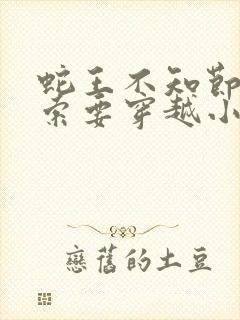 蛇王不知節
索要穿越小
戀舊的土豆